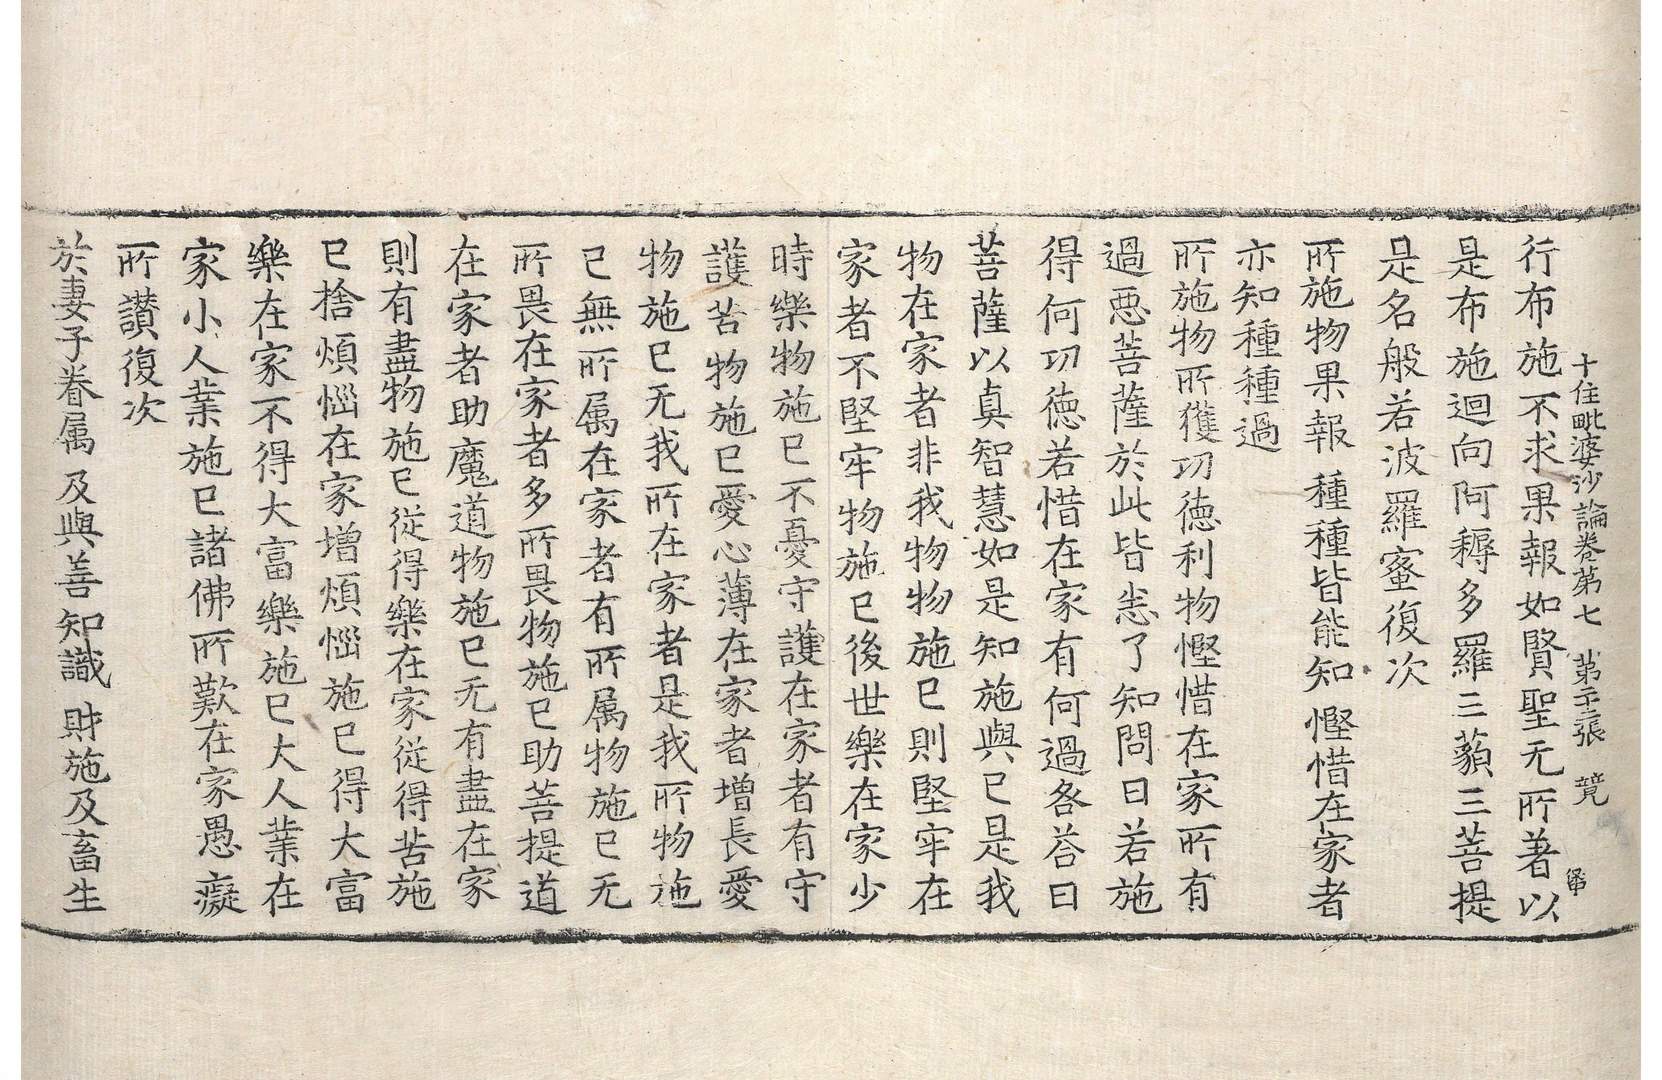 十住毗婆沙論卷第七 第二張 竟
行布施不求果報如賢聖无所著以
是布施迴向阿耨多羅三藐三菩提
是名般若波羅蜜復次
所施物果報 種種皆能知 慳惜在家者
亦知種種過
所施物所獲功德利物慳惜在家所有
過惡菩薩於此皆悉了知問曰若施
得何功德若惜在家有何過咎荅曰
菩薩以真智慧如是知施與已是我
物在家者非我物物施已則堅牢在
家者不堅牢物施已後世樂在家少
時樂物施已不憂守護在家者有守
護苦物施已愛心薄在家者增長愛
物施已无我所在家者是我所物施
已無所属在家者有所属物施已无
所畏在家者多所畏物施已助菩提道
在家者助魔道物施已无有盡在家
則有盡物施已從得樂在家從得苦施
已捨煩惱在家增煩惱施已得大富
樂在家不得大富樂施已大人業在
家小人業施已諸佛所歎在家愚癡
所讚復次
於妻子眷属 及與善知識 財施及畜生